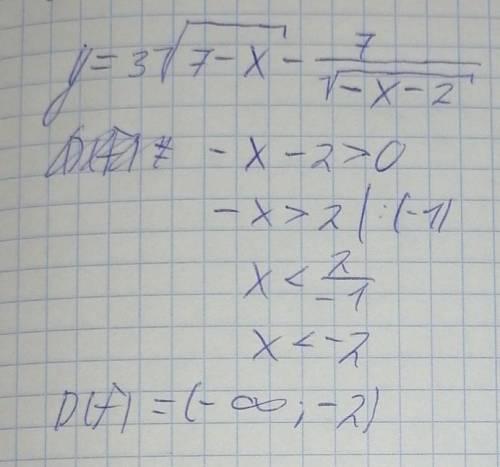 y = 3√(7-x) - 7/√(-x-2)
-x-2>0
-x>2 | :(-1)
x < 2/-1
x < -2
D(f) = (-∞; -2)